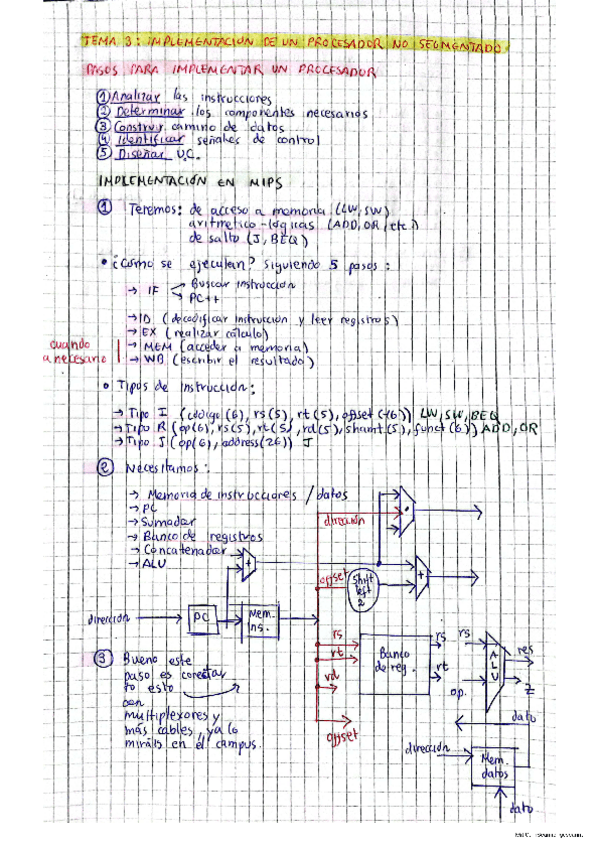 TEMA 3: IMPLEMENTACIÓN DE UN PROCESADOR NO SEGMENTADO
PASOS PARA IMPLEMENTAR UN PROCESADOR
① Analizar las instrucciones
② Determinar los componentes necesarios
③ Construir camino de datos
④ Identificar señales de control
⑤ Diseñar U.C.
IMPLEMENTACIÓN EN MIPS
① Tenemos: de acceso a memoria (LW, SW)
aritmético-lógicas (ADD, OR, etc.)
de salto (J, BEQ)
• ¿Cómo se ejecutan? Siguiendo 5 pasos:
→ IF
Buscar instrucción
PC++
→ ID (decodificar instrucción y leer registros)
→ EX (realizar cálculo)
cuando
→ MEM (acceder a memoria)
necesario
→ WB (escribir el resultado)
• Tipos de instrucción:
→ Tipo I (código(6), rs(5), rt(5), offset(16)) LW, SW, BEQ
→ Tipo R (op(6), rs(5), rt(5), rd(5), shamt(5), funct(6)) ADD, OR
→ Tipo J (op(6), address(26)) J
② Necesitamos:
→ Memoria de instrucciones / datos
→ PC
→ Sumador
→ Banco de registros
→ Concatenador
→ ALU
dirección
+
offset
Shift
left
2
+
dirección
PC
Mem.
Ins.
rs
rt
rd
offset
Banco
de reg.
rs
rt
rs
op.
ALU
res
Z
dato
dirección
Mem.
datos
dato
③ Bueno este
paso es conectar
to esto
con
multiplexores y
más cables, ya lo
miráis en el campus.